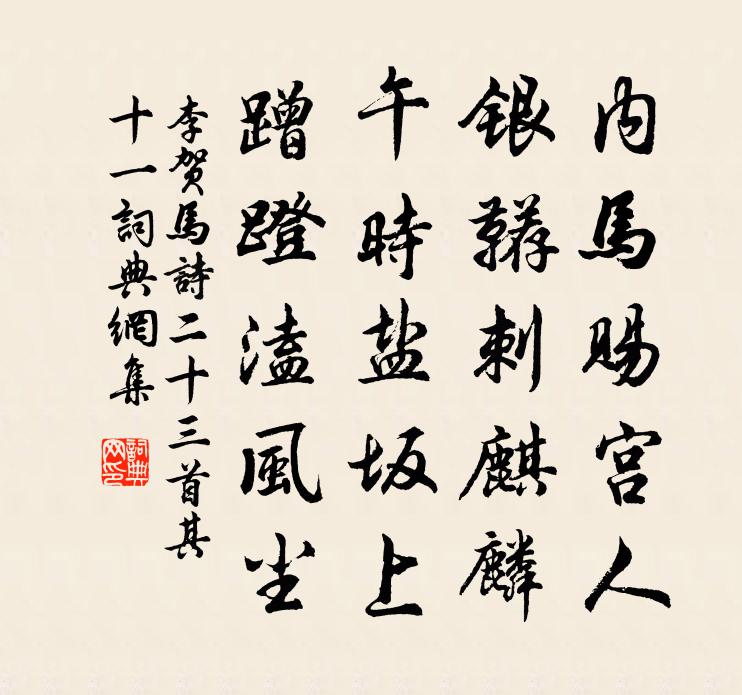 内馬賜宫人
銀韉刺麒麟
午時盐坂上
蹭蹬溘風尘
李賀馬詩二十三首其
十一詞典網集
詞典
网印